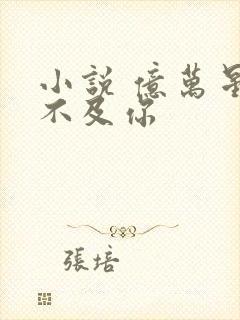 小說 億萬星
不及你
張培